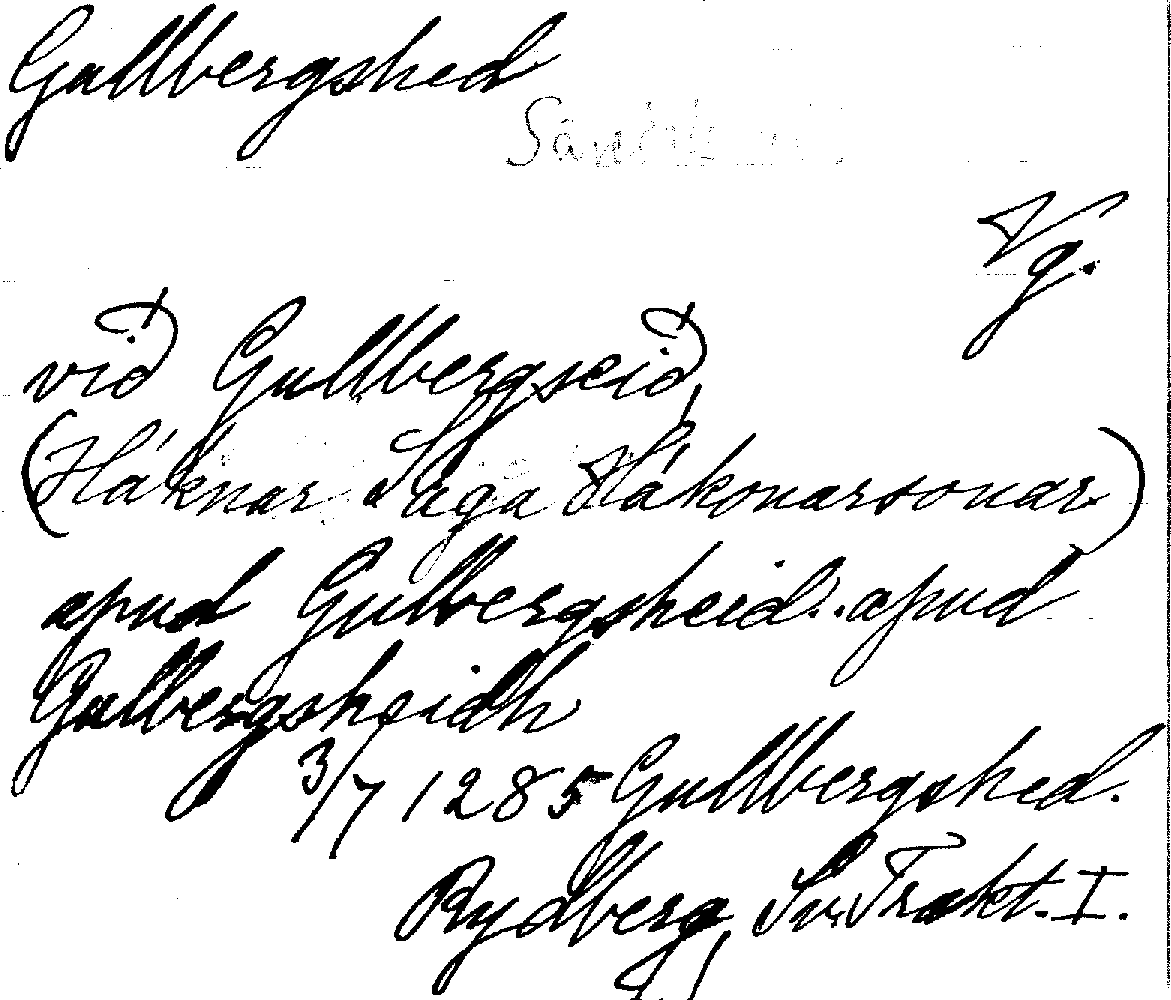 Gullbergshed
Vg.
við Gullbergseið,
(Háknar Saga Hákonarsonar)
apud Gulbergsheid.. apud
Gulbergsheidh
3/7 1285 Gullbergshed.
Rydberg, Sv. Trakt. I.